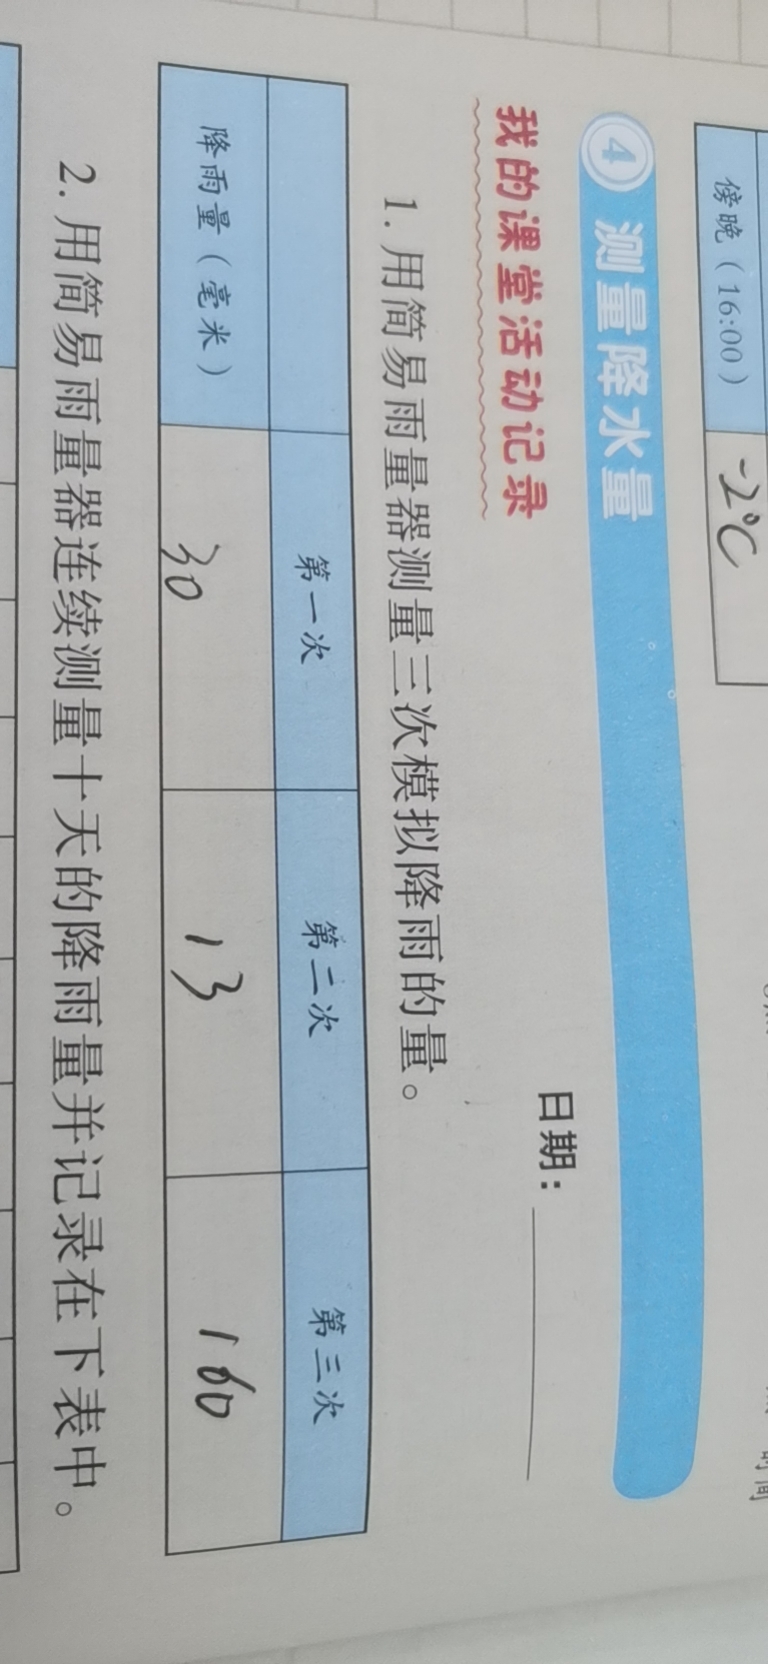 傍晚（16:00） -2℃
④ 测量降水量
我的课堂活动记录
日期：
1. 用简易雨量器测量三次模拟降雨的量。
第一次 第二次 第三次
降雨量（毫米） 30 13 160
2. 用简易雨量器连续测量十天的降雨量并记录在下表中。